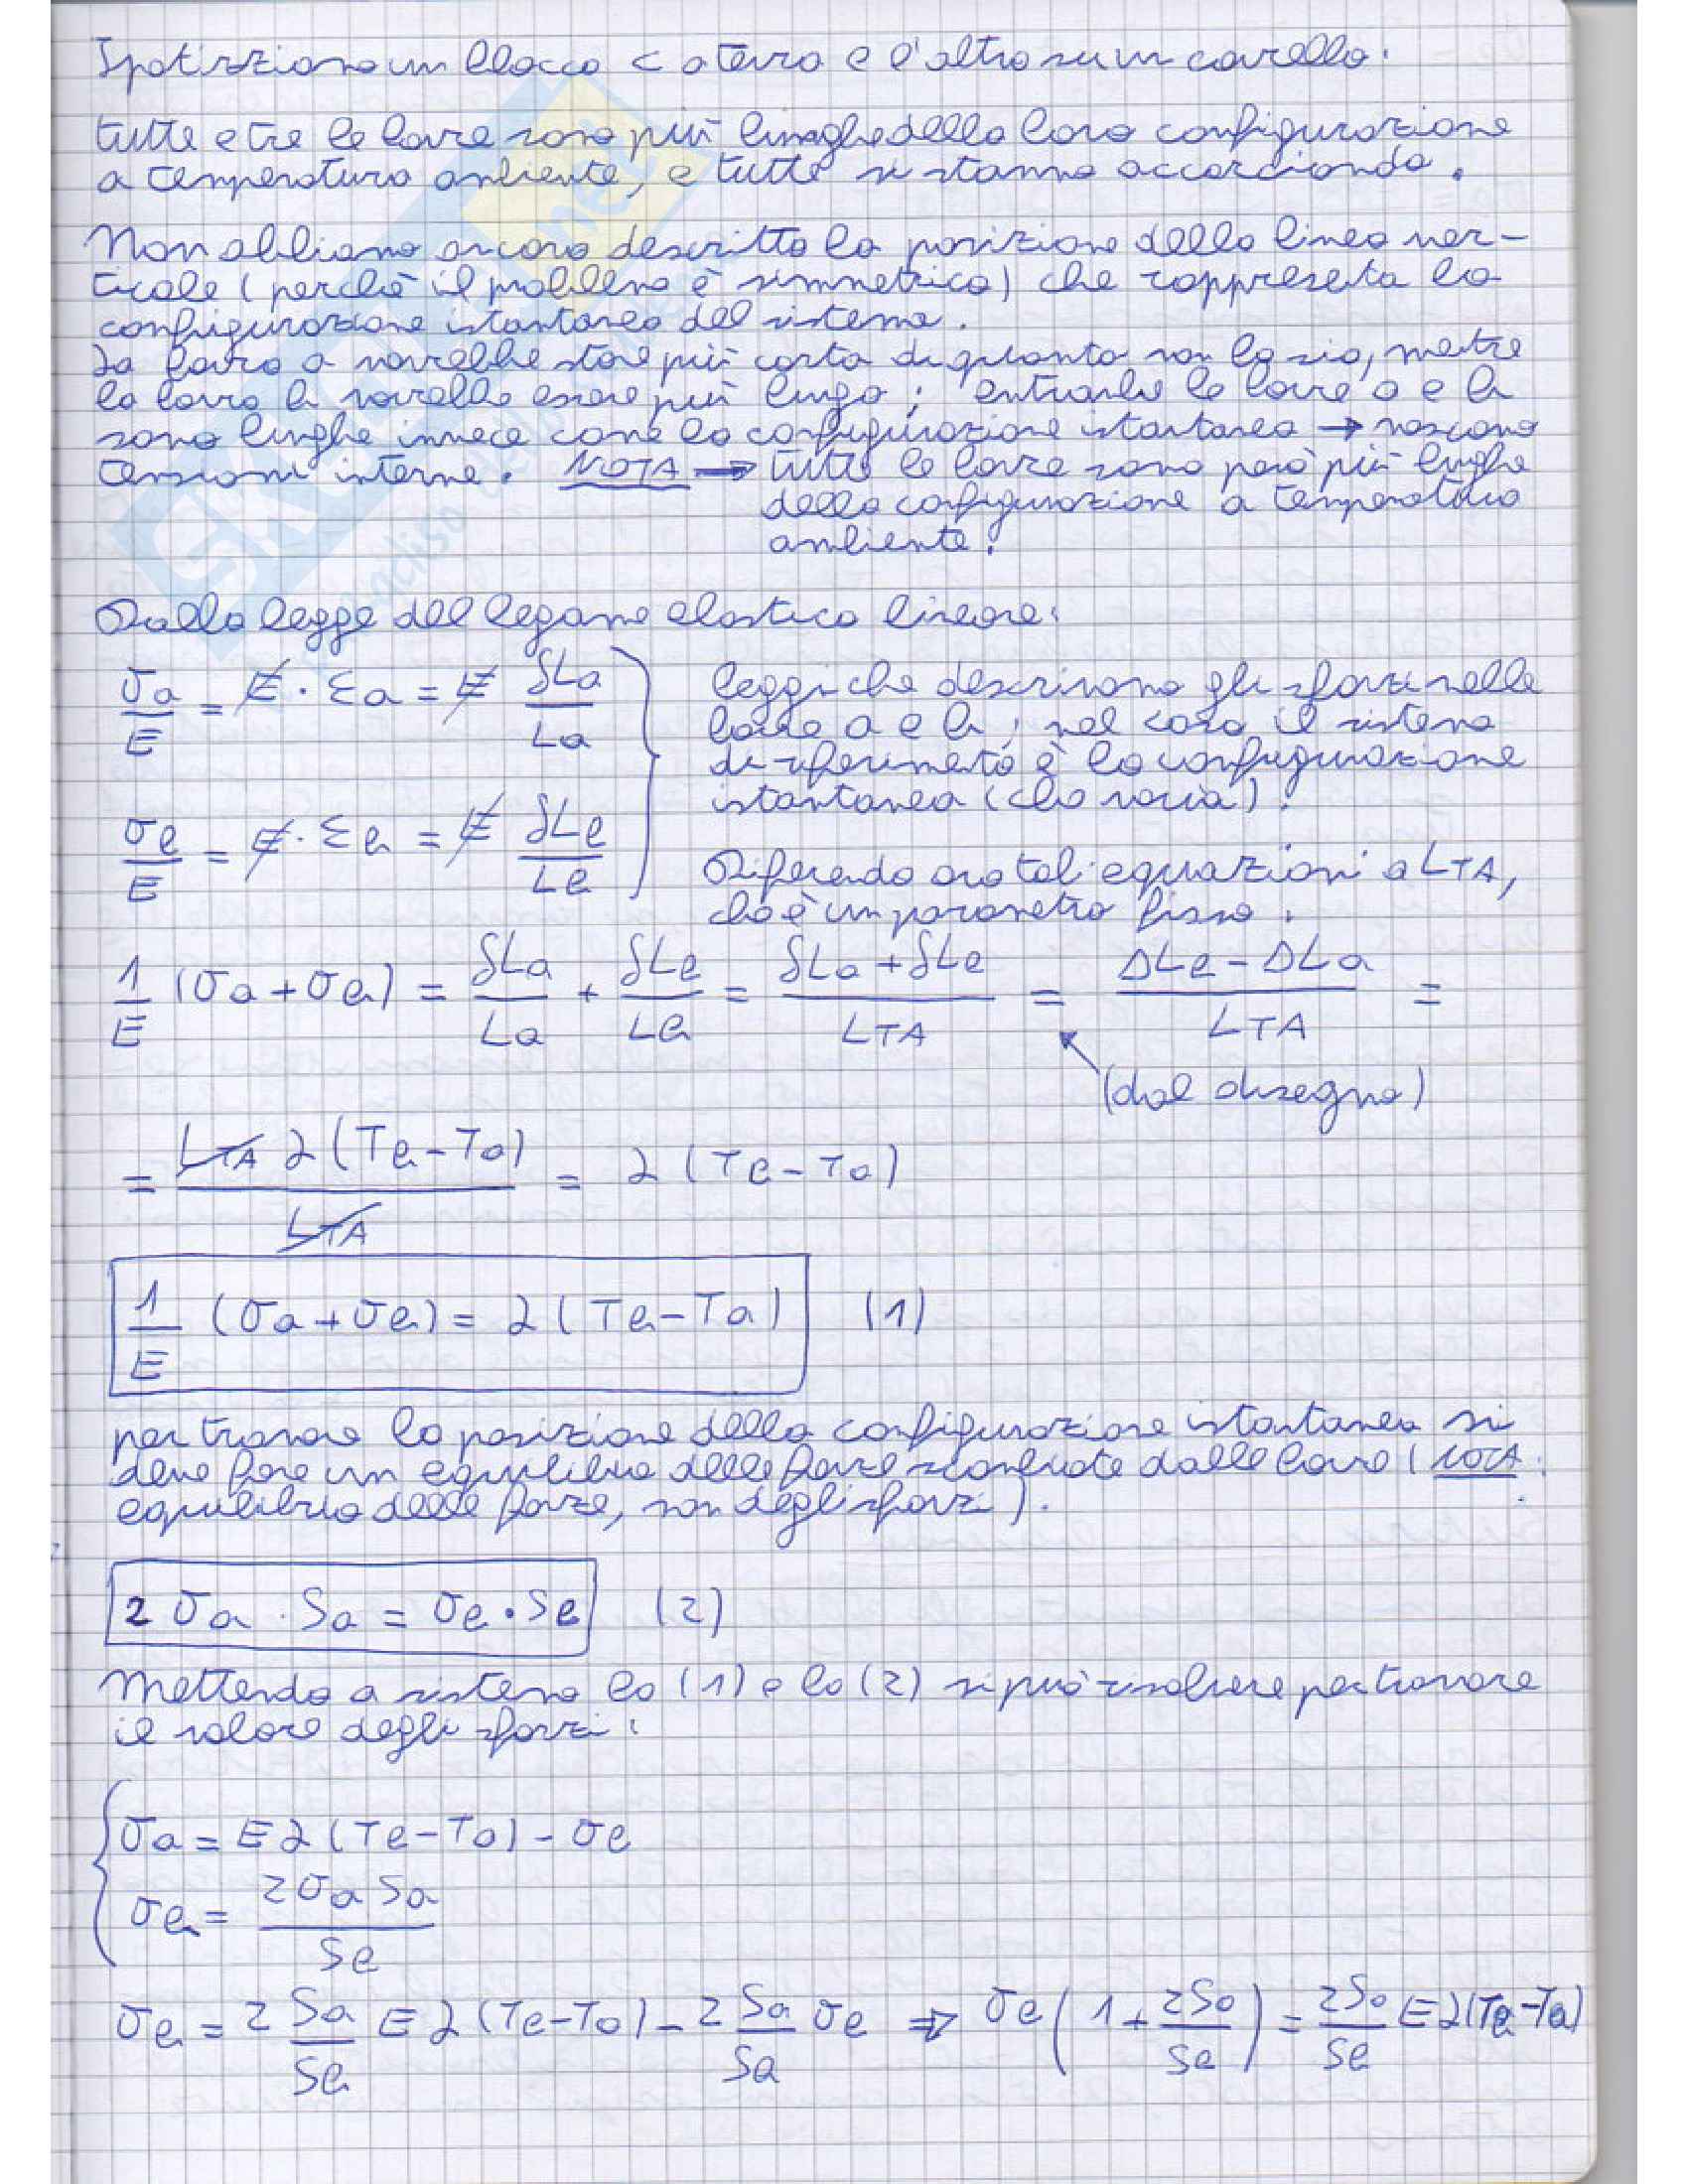 Ipotizziamo un blocco < a terra e l'altro su un carrello.
tutte e tre le barre sono più lunghe della loro configurazione
a temperatura ambiente, e tutte si stanno accorciando.
Non abbiamo ancora descritto la posizione della linea ver-
ticale (perchè il problema è simmetrico) che rappresenta la
configurazione istantanea del sistema.
La barra a vorrebbe stare più corta di quanto non la sia, mentre
la barra b vorrebbe essere più lunga; entrambe le barre a e b
sono lunghe invece come la configurazione istantanea → nascono
tensioni interne. NOTA → tutte le barre sono però più lunghe
della configurazione a temperatura
ambiente.
Dalla legge del legame elastico lineare:
σa/E = E · εa = E δLa/La
leggi che descrivono gli sforzi nelle
barre a e b; nel caso il sistema
di riferimento è la configurazione
istantanea (che varia).
σb/E = E · εb = E δLb/Lb
Riferendo ora tali equazioni a LTA,
che è un parametro fisso.
1/E (σa+σb) = δLa/La + δLb/Lb = (δLa+δLb)/LTA = (ΔLb-ΔLa)/LTA =
(dal disegno)
= LTA α(Tb-Ta)/LTA = α(Tb-Ta)
1/E (σa+σb) = α(Tb-Ta) (1)
per trovare la posizione della configurazione istantanea si
deve fare un equilibrio delle forze scambiate dalle barre (NOTA:
equilibrio delle forze, non degli sforzi).
2 σa · Sa = σb · Sb (2)
Mettendo a sistema la (1) e la (2) si può risolvere per trovare
il valore degli sforzi:
σa = E α(Tb-Ta) - σb
σb = 2σa Sa/Sb
σb = 2 Sa/Sb E α(Tb-Ta) - 2 Sa/Sa σb ⇒ σb (1 + 2Sa/Sb) = 2Sa/Sb E α(Tb-Ta)